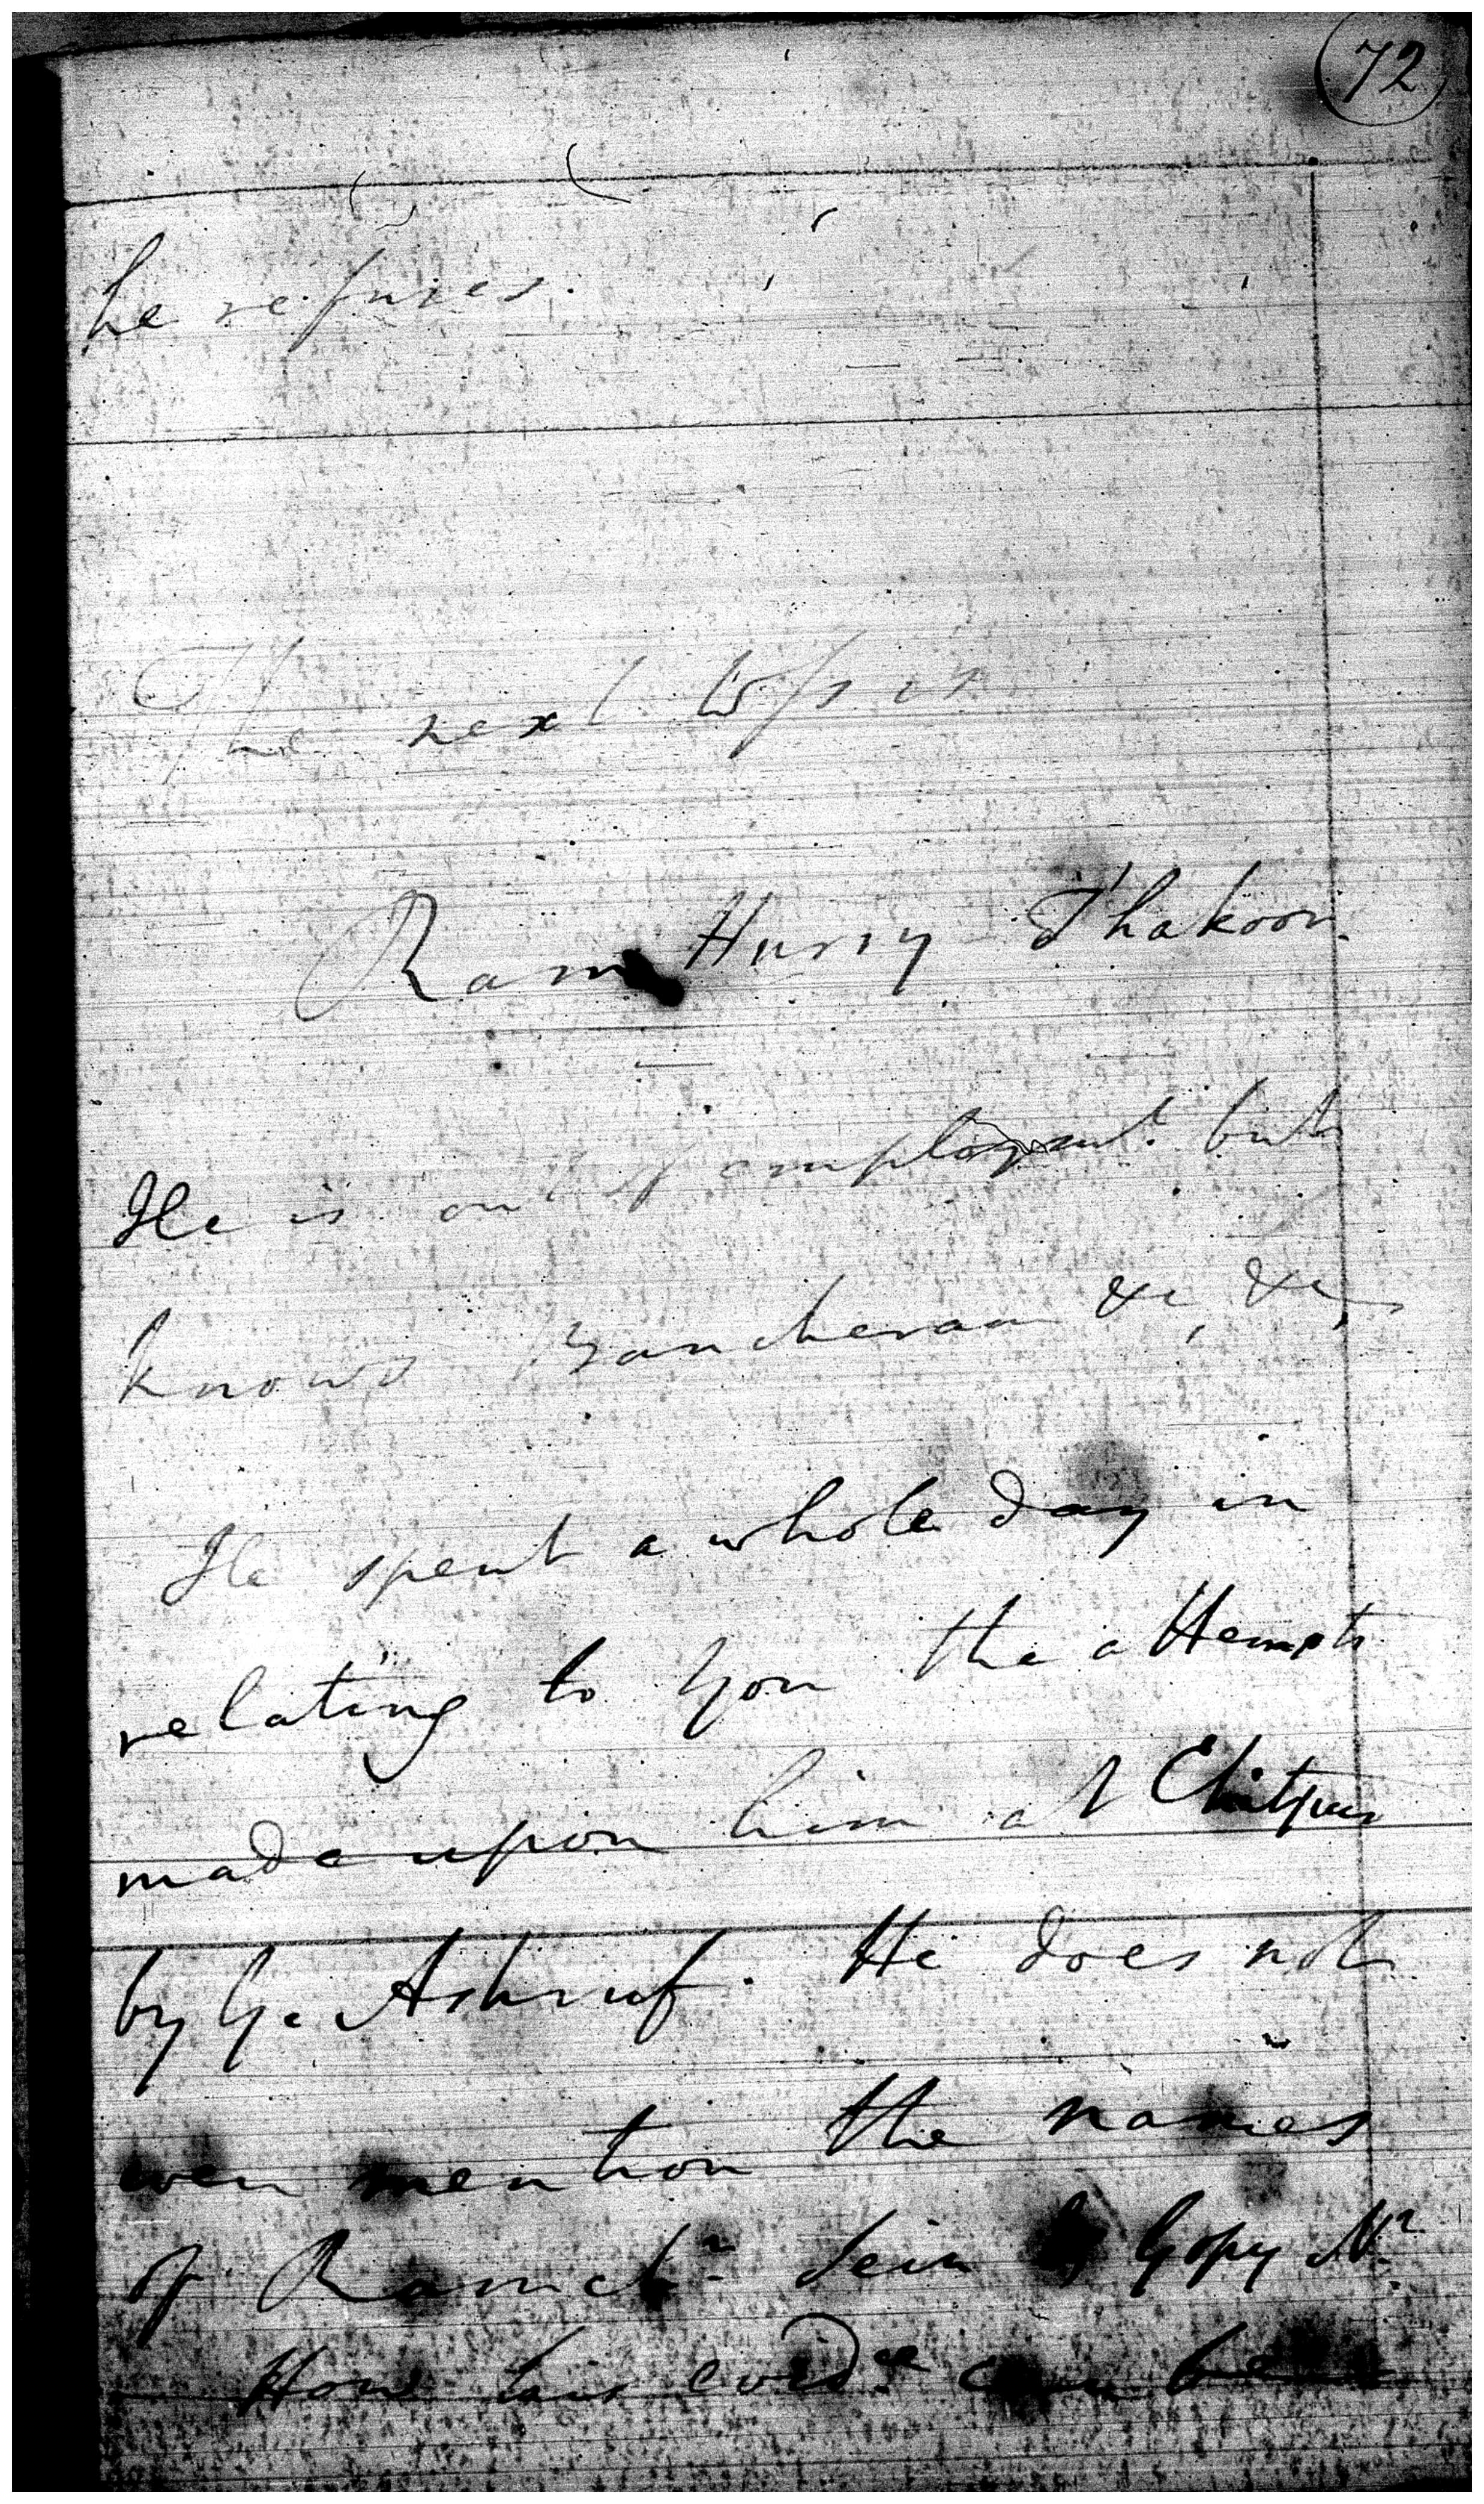 72
he refuses.
The next Wss is
Ram Hurry Thakoor.
He is out of employmt. but
knows Bancheram &c, &c,
He spent a whole day in
relating to you the attempts
made upon him at Chitpur
by G. Ashruf. He does not
even mention the names
of Ramchr. Sein Gopy Nr.
How his evidce can be